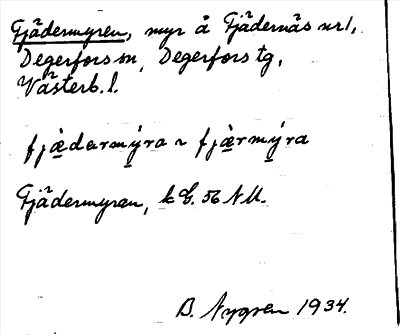 Fjädermyren, myr å Fjädernäs nr 1,
Degerfors sn, Degerfors tg,
Västerb. l.
fjæ̀darmýra ~ fjæ̀rmýra
Fjädermyren, k G. 56 N U.
B. Nygren 1934.